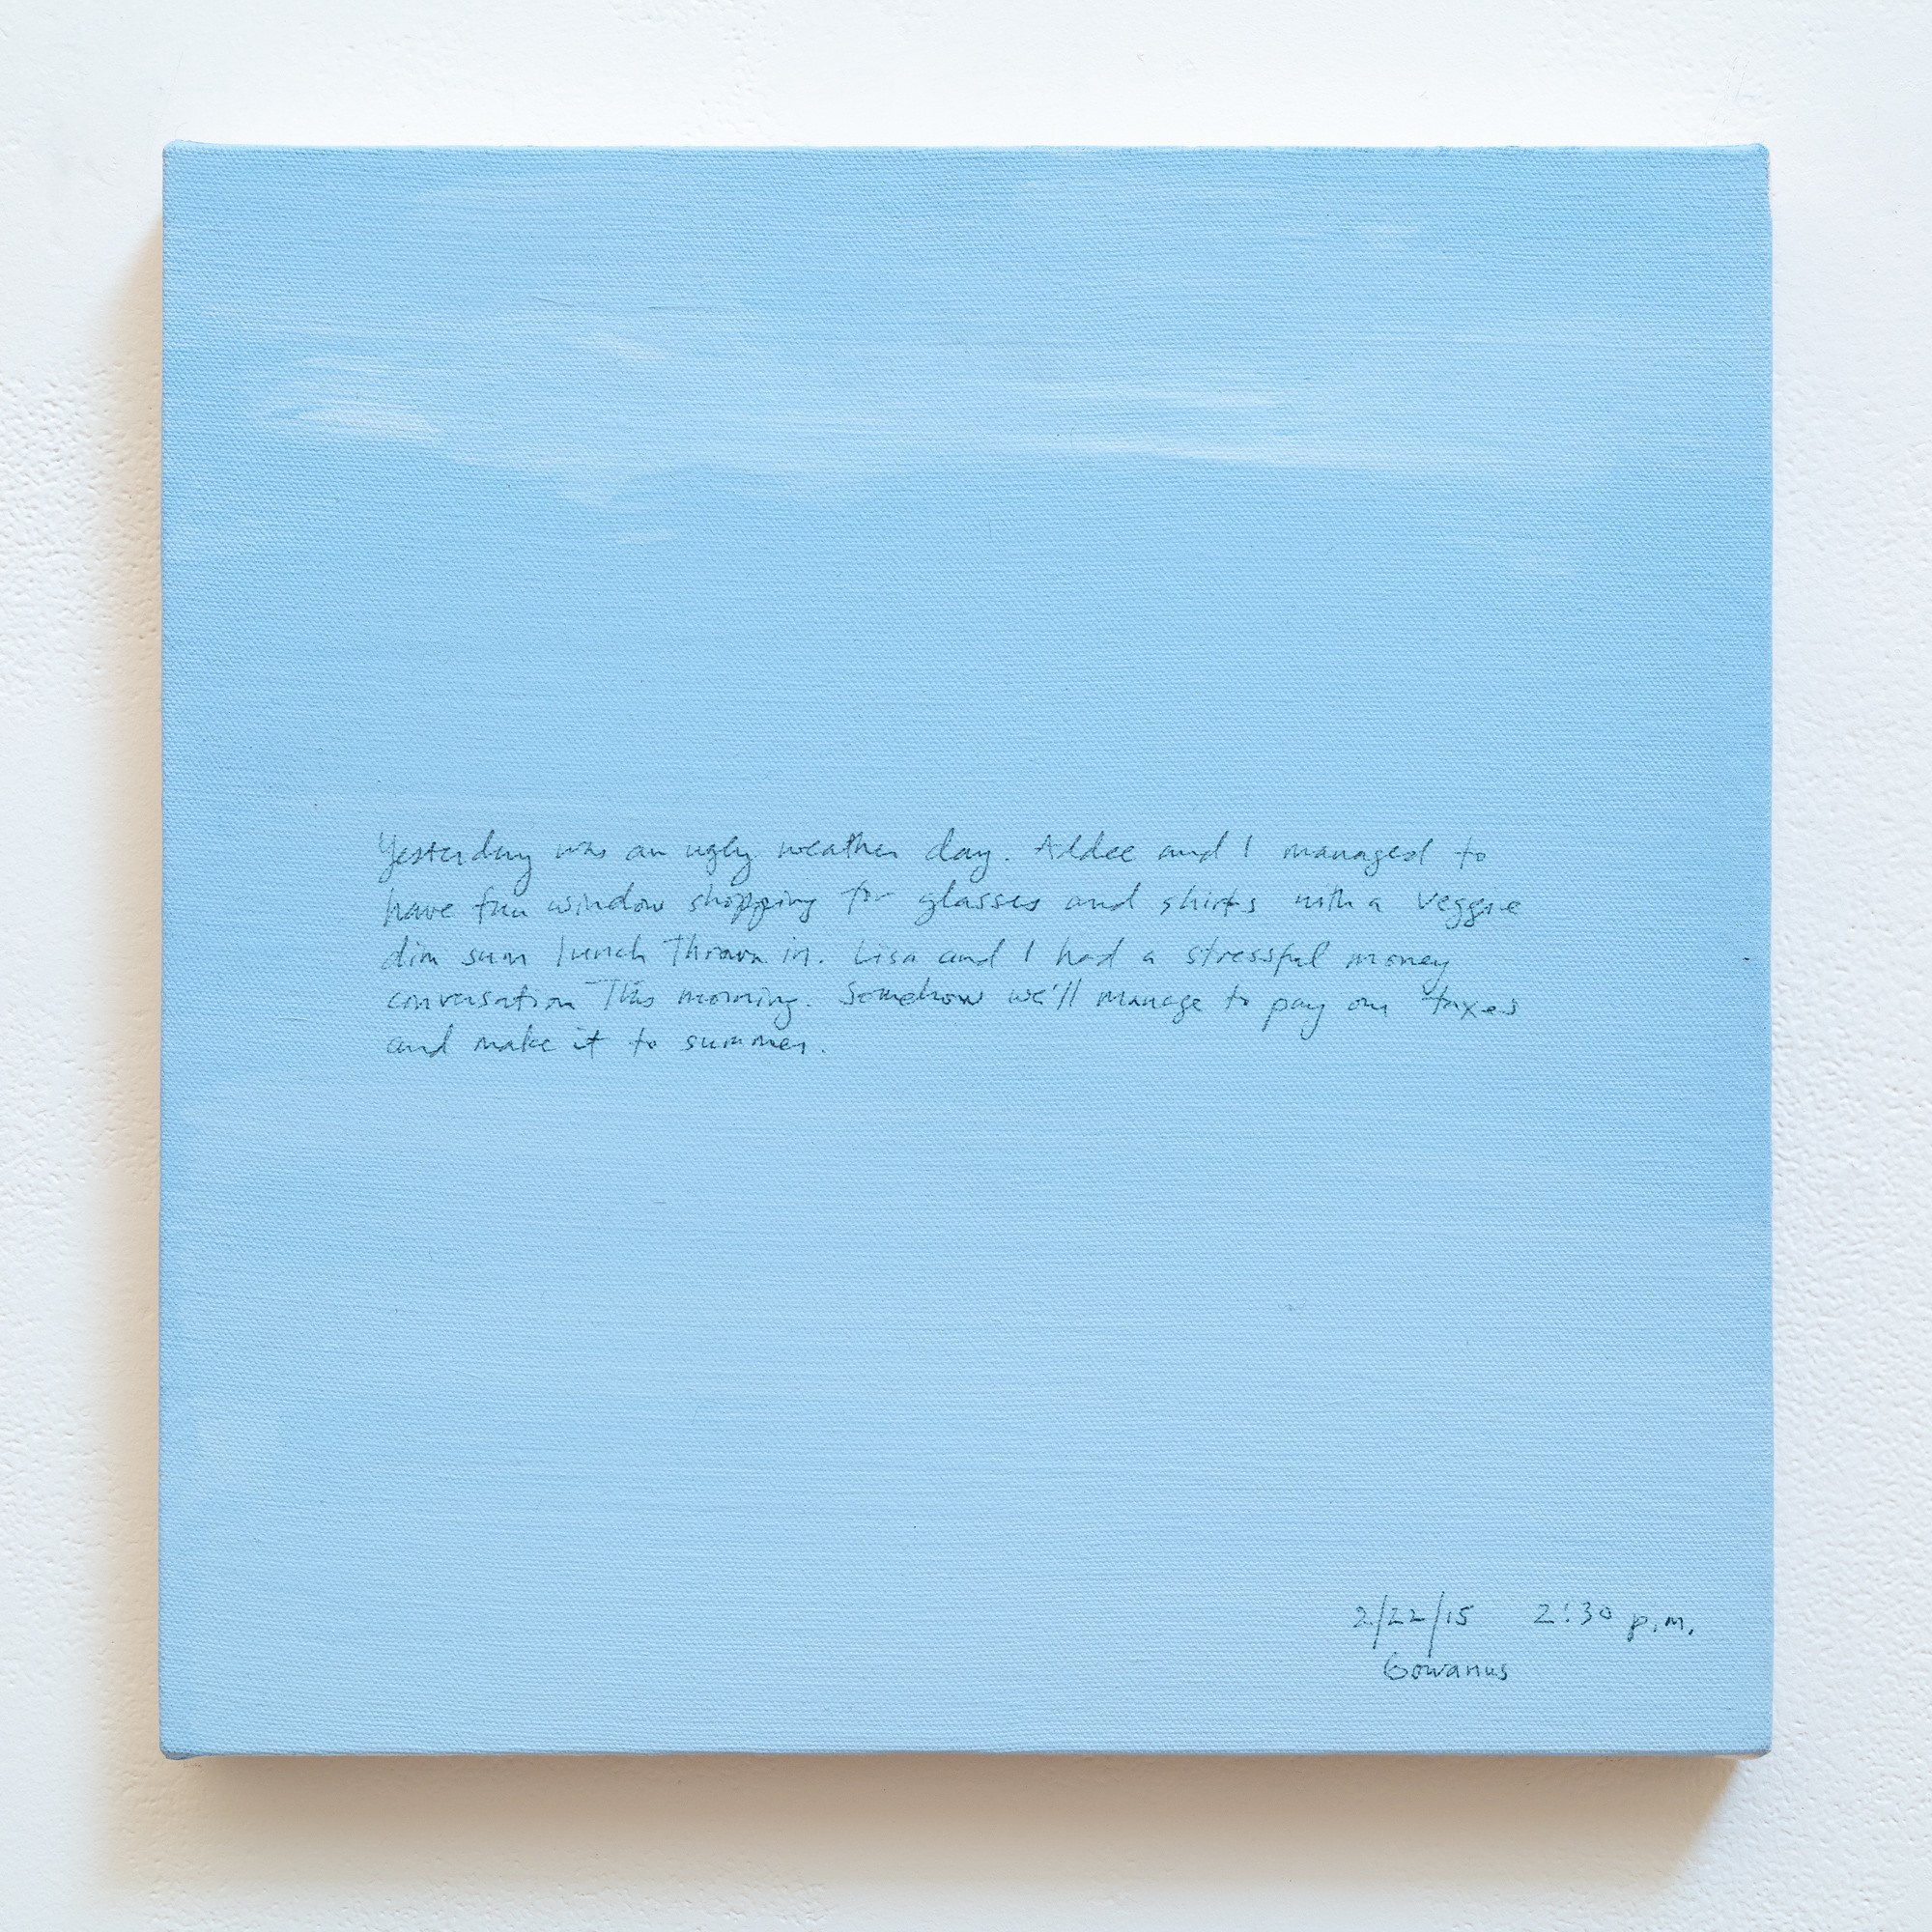 Yesterday was an ugly weather day. Addee and I managed to
have fun window shopping for glasses and shirts with a veggie
dim sum lunch thrown in. Lisa and I had a stressful money
conversation this morning. Somehow we'll manage to pay our taxes
and make it to summer.
2/22/15 2:30 p.m.
Gowanus